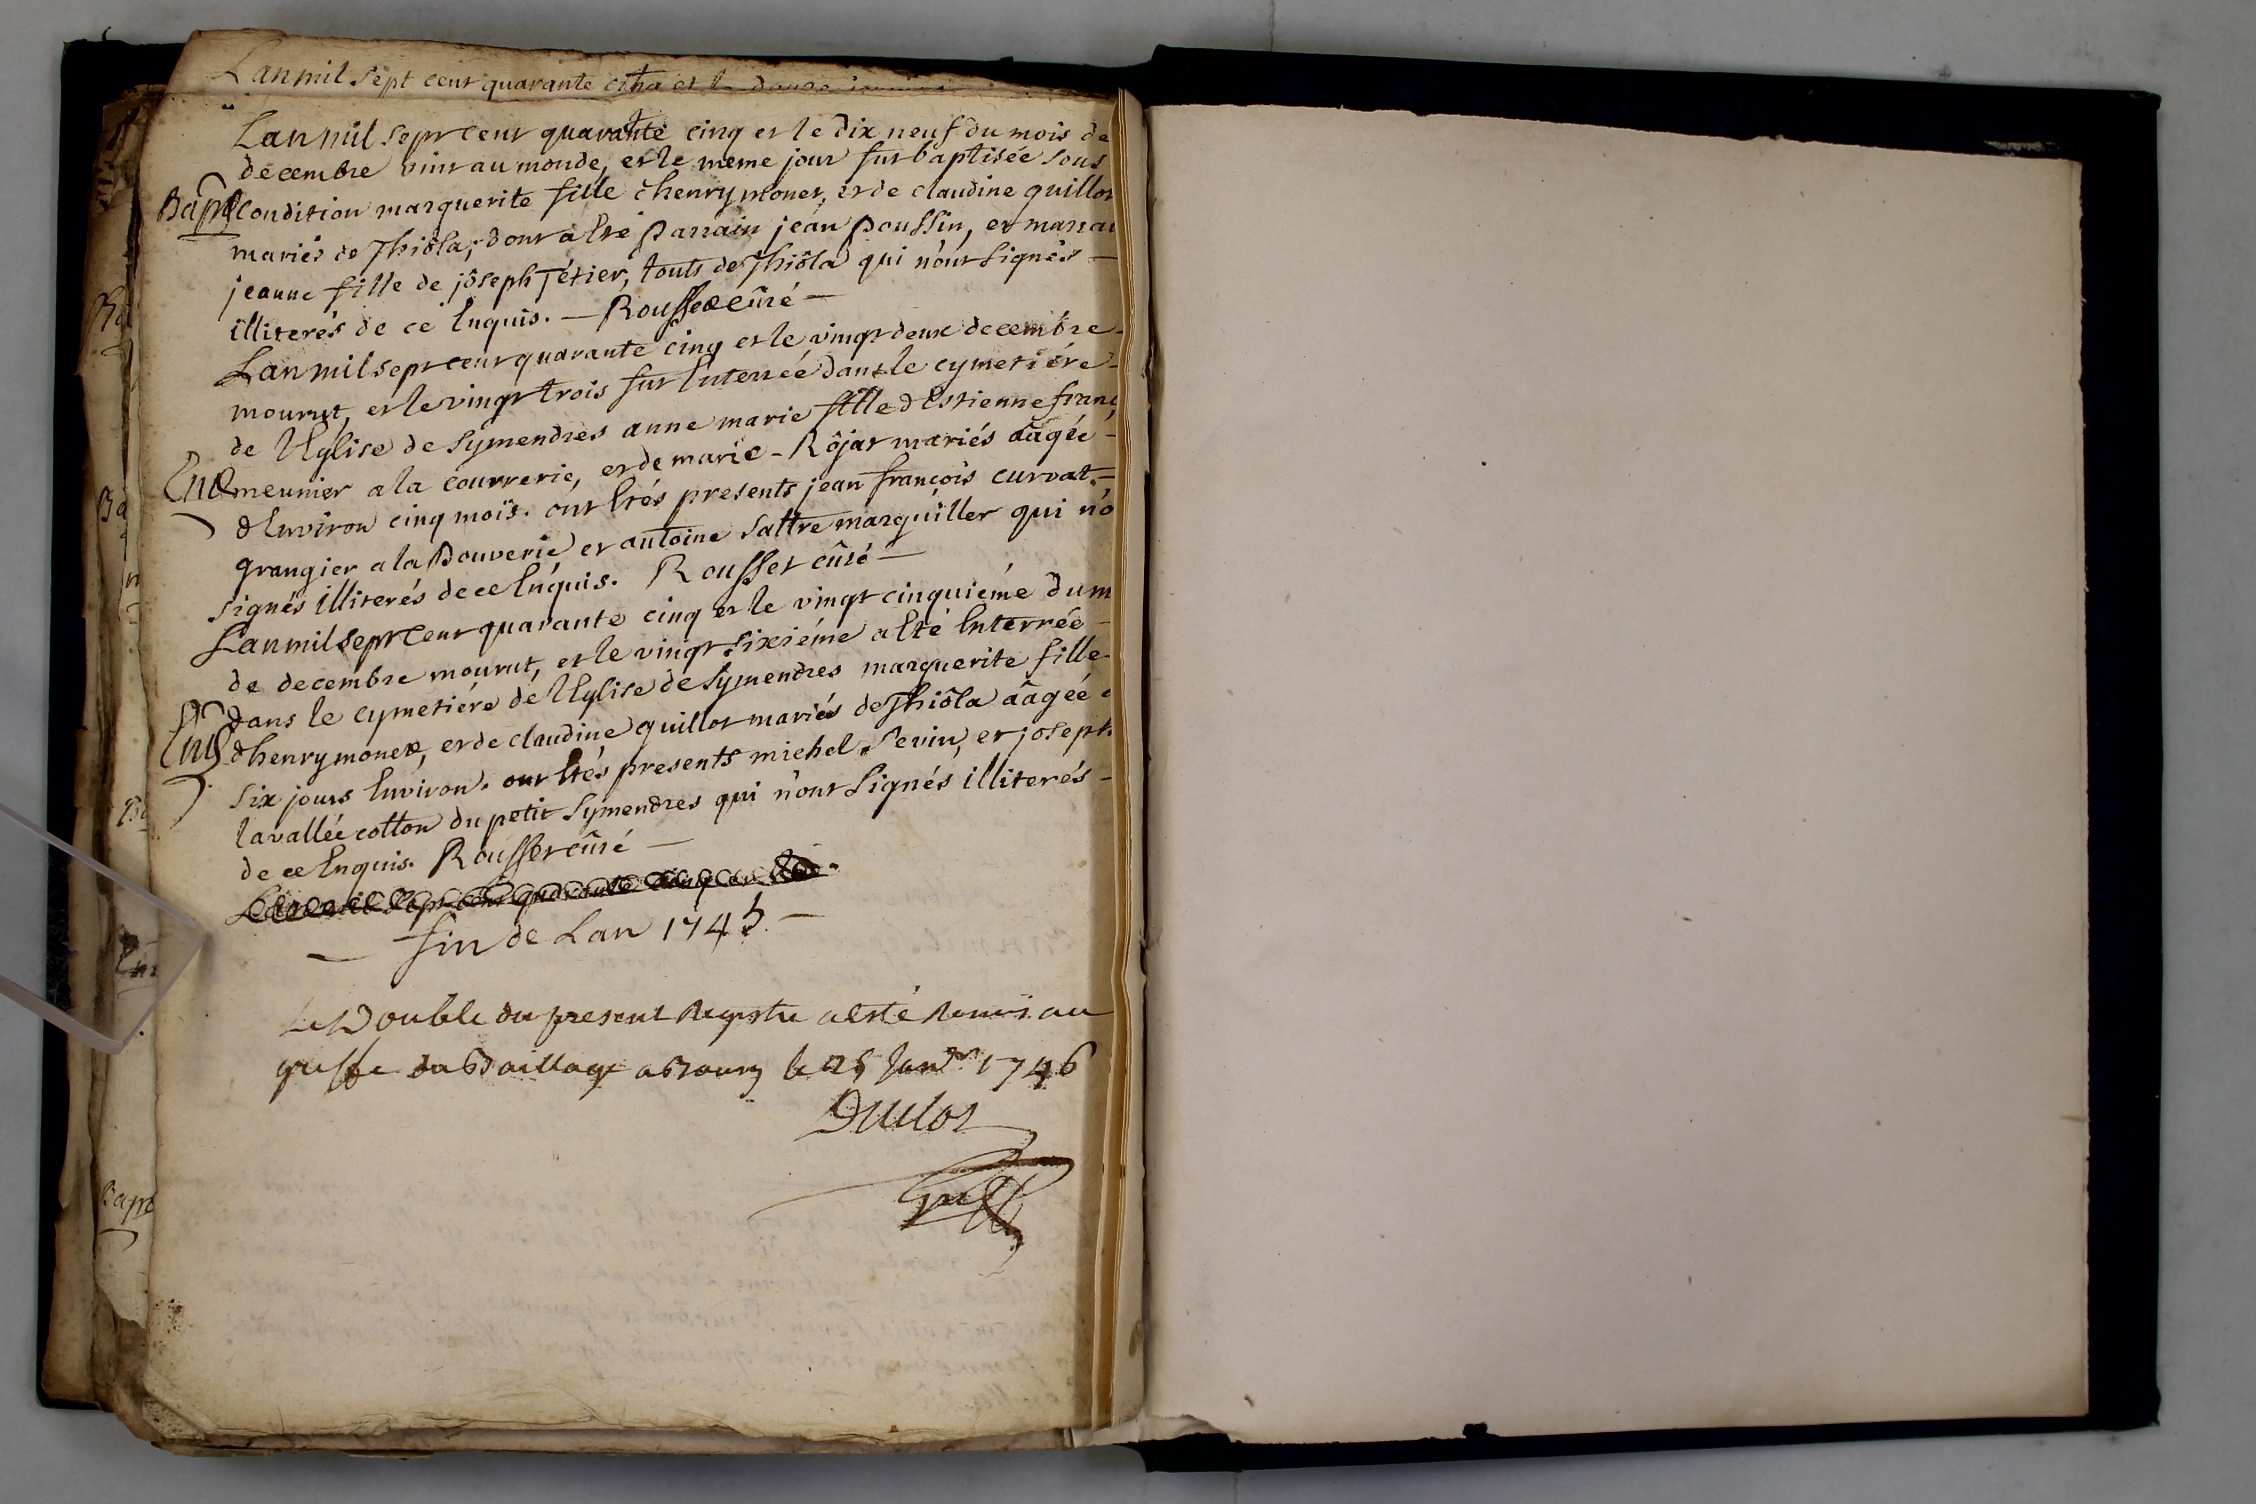 Lan mil sept cent quarante cinq et le douze
Lan mil sept cent quarante cinq et le dix neuf du mois de
decembre vint au monde, et le meme jour fut baptisée sous
Bapt condition marguerite fille dhenry monet, et de claudine quillot
mariés de Thiôla; dont a Eté parrain jean poussin, et marrai
jeanne fille de jôseph Tétier, touts de Thiôla qui n'ont signés —
illiterés de ce Enquis. — Rousset cûré —
Lan mil sept cent quarante cinq et le vingt deux decembre —
mourut, et le vingt trois fut Enterrée dans le cymetiére —
de lEglise de Symendres anne marie fille dEstienne franç
Ent meunier a la courrerie, et de marie - Rôjat mariés aâgée —
dEnviron cinq moïs. ont Etés presents jean françois curvat —
grangier a la Bouverie et antoine sattre marguiller qui n'o
signés illiterés de ce Enquis. Rousset cûré —
Lan mil sept cent quarante cinq et le vingt cinquiéme du m
de decembre mourut, et le vingt sixiéme a Eté Enterrée —
dans le cymetiére de lEglise de Symendres marguerite fille
Ent dhenry monet, et de claudine quillot mariés de Thiôla aâgée
six jours Environ. ont Etés presents michel Sevin, et joseph
lavallée cotton du petit Symendres qui n'ont signés illiterés —
de ce Enquis. Rousset cûré —
Lan mil sept cent quarante cinq et le
— fin de Lan 1745. —
Le Double du present Registre a esté Remis au
greffe du Baillage a Bourg le 25 Janv.r 1746